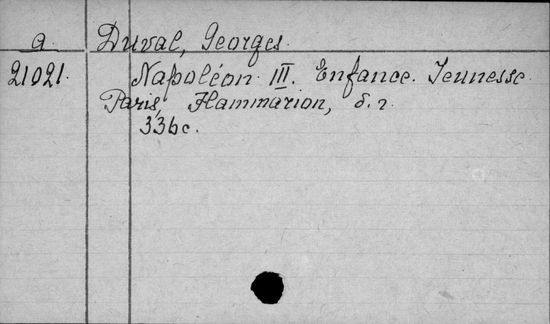 a Duval, Georges
21021. Napoléon III. Enfance. Jeunesse.
Paris, Flammarion, s. a.
336 c.